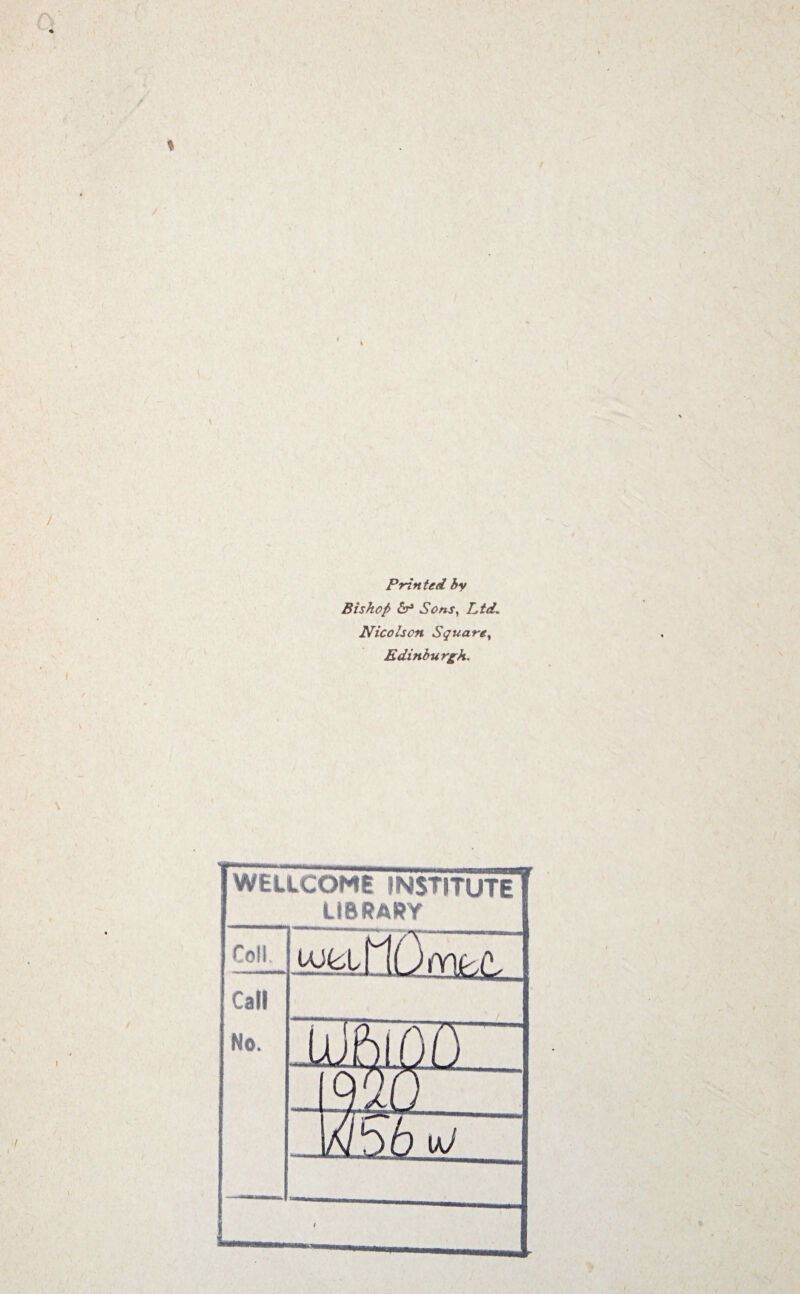 Printed by
Bishop & Sons, Ltd.
Nicolson Square,
Edinburgh.
WELLCOME INSTITUTE
LIBRARY
Coll. welMOmec
Call
No. WB100
1920
W56w